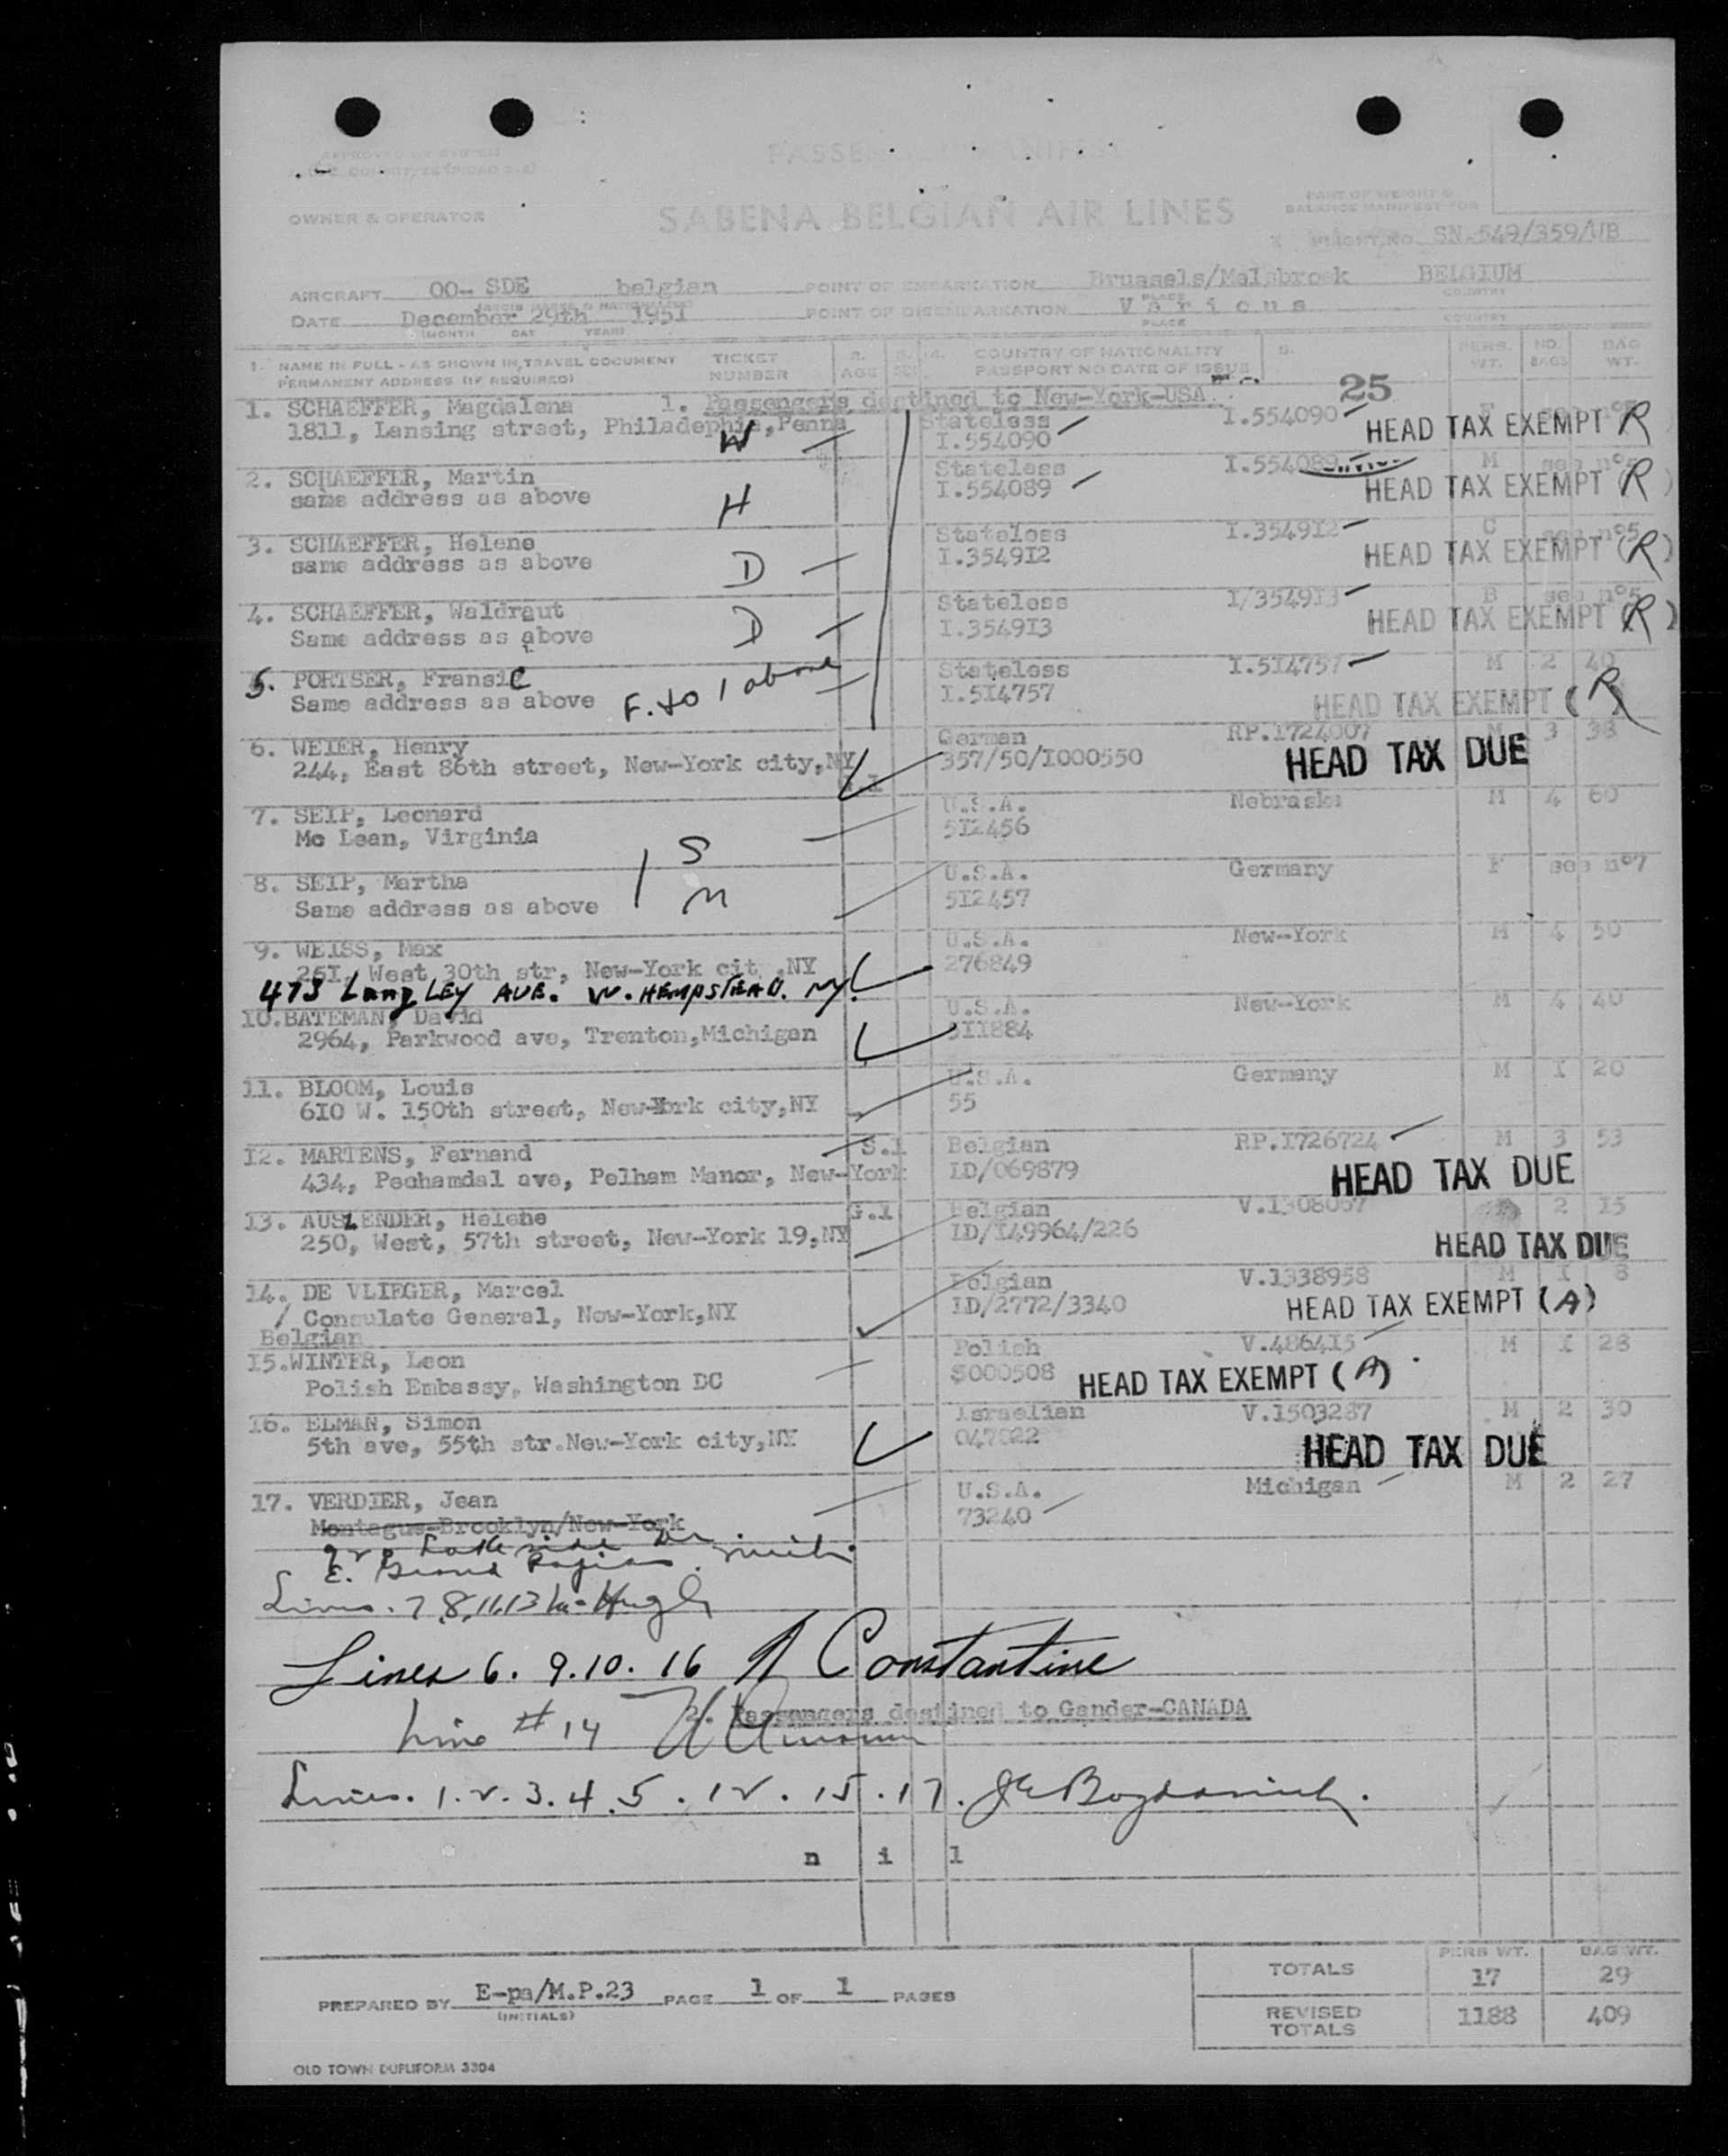 PASSENGER MANIFEST
OWNER & OPERATOR SABENA BELGIAN AIR LINES
PART OF WEIGHT & BALANCE MANIFEST FOR
FLIGHT NO. SN.549/359/UB
AIRCRAFT OO- SDE belgian POINT OF EMBARKATION Brussels/Melsbroek BELGIUM
DATE December 29th 1951 POINT OF DISEMBARKATION V a r i o u s
(MONTH DAY YEAR) PLACE COUNTRY
1. NAME IN FULL - AS SHOWN IN TRAVEL DOCUMENT TICKET NUMBER 2. AGE 3. SEX 4. COUNTRY OF NATIONALITY 5. PERS. WT. NO. BAGS BAG WT.
PERMANENT ADDRESS (IF REQUIRED) PASSPORT NO DATE OF ISSUE
25
1. Passengers destined to New-York-USA
1. SCHAEFFER, Magdalena Stateless I.554090 F see n°5
1811, Lansing street, Philadephia,Penna W I.554090 HEAD TAX EXEMPT R
2. SCHAEFFER, Martin Stateless I.554089 M see n°5
same address as above H I.554089 HEAD TAX EXEMPT (R)
3. SCHAEFFER, Helene Stateless I.354912 C see n°5
same address as above D I.354912 HEAD TAX EXEMPT (R)
4. SCHAEFFER, Waldraut Stateless I/354913 B see n°5
Same address as above D I.354913 HEAD TAX EXEMPT (R)
5. PORTSER, Fransic Stateless I.514757 M 2 40
Same address as above F. to 1 above I.514757 HEAD TAX EXEMPT (R)
6. WEIER, Henry German RP.1724007 M 3 38
244, East 86th street, New-York city,NY 357/50/1000550 HEAD TAX DUE
7. SEIP, Leonard U.S.A. Nebraska M 4 60
Mc Lean, Virginia 512456
S
8. SEIP, Martha U.S.A. Germany F see n°7
Same address as above M 512457
9. WEISS, Max U.S.A. New-York M 4 50
251, West 30th str, New-York cit ,NY 276849
473 LangLEY AVE. W. HEMPSTEAD. NY.
10.BATEMAN, David U.S.A. New-York M 4 40
2964, Parkwood ave, Trenton,Michigan 511884
11. BLOOM, Louis U.S.A. Germany M 1 20
610 W. 150th street, New-York city,NY 55
12. MARTENS, Fernand S.1 Belgian RP.1726724 M 3 53
434, Pechamdal ave, Pelham Manor, New-York LD/069879 HEAD TAX DUE
13. AUSLENDER, Helene G.1 Belgian V.1308067 2 15
250, West, 57th street, New-York 19,NY LD/149964/226 HEAD TAX DUE
14. DE VLIEGER, Marcel Belgian V.1338958 M 1 8
/ Consulate General, New-York,NY LD/2772/3340 HEAD TAX EXEMPT (A)
Belgian
15.WINTER, Leon Polish V.486415 M 1 28
Polish Embassy, Washington DC S000508 HEAD TAX EXEMPT (A)
16. ELMAN, Simon Israelian V.1503287 M 2 30
5th ave, 55th str.New-York city,NY 047022 HEAD TAX DUE
17. VERDIER, Jean U.S.A. Michigan M 2 27
Montague-Brooklyn/New-York 73240
E. Grand Rapids. Mich.
Lines. 7 8,11,13
Lines 6. 9.10. 16 Constantine
2. Passengers destined to Gander-CANADA
Line # 14
Lines. 1. 2. 3. 4. 5. 12. 15. 17.
n i l
PERS WT. BAG WT.
TOTALS 17 29
PREPARED BY E-pa/M.P.23 PAGE 1 OF 1 PAGES
(INITIALS)
REVISED TOTALS 1188 409
OLD TOWN DUPLIFORM 3304